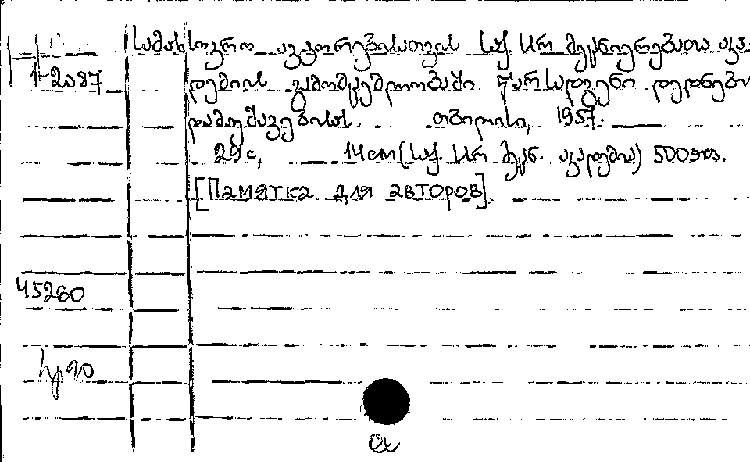 სამახსოვრო ავტორებისათვის საქ. სსრ მეცნიერებათა აკა-
1-2087 დემიის გამომცემლობაში წარსადგენი დედნების
დამუშავებისას. თბილისი, 1957.
29 с, 14 cm (საქ. სსრ მეცნ. აკადემია) 500 ეგზ.
[Памятка для авторов]
45280